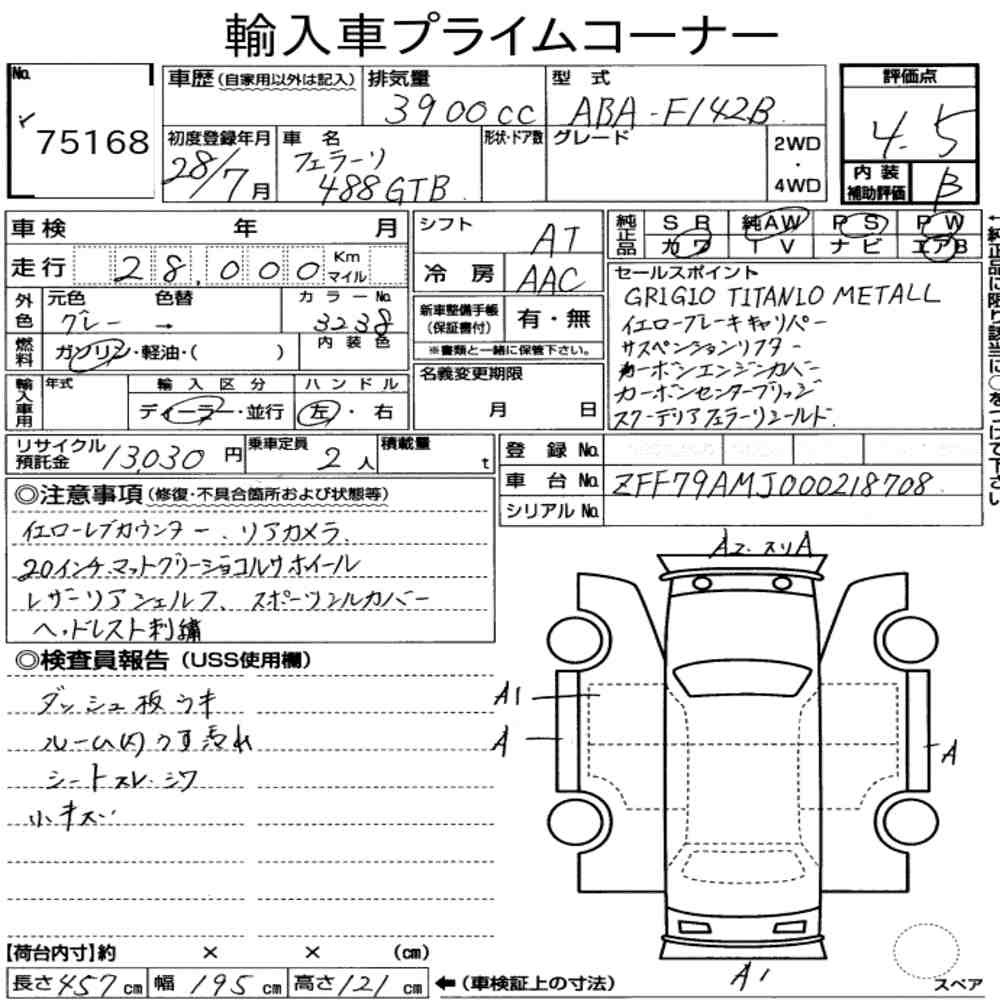 輸入車プライムコーナー
No.
75168
車歴(自家用以外は記入)
排気量
3900cc
型 式
ABA-F142B
評価点
4.5
初度登録年月
28/7月
車 名
フェラーリ
488GTB
形状・ドア数
グレード
2WD
・
4WD
内装
補助評価
B
車検 年 月
走行 28,000 Km
マイル
シフト
AT
冷 房
AAC
純正品
SR 純AW PS PW
カワ TV ナビ エアB
外色
元色 色替
グレー →
カラーNo.
3238
内装色
燃料
ガソリン・軽油・( )
新車整備手帳
(保証書付)
有・無
※書類と一緒に保管下さい。
セールスポイント
GRIGIO TITANIO METALL
イエローブレーキキャリパー
サスペンションリフター
カーボンエンジンカバー
カーボンセンターブリッジ
スクーデリアフェラーリシールド.
輸入車用
年式
輸入区分
ディーラー・並行
ハンドル
左・右
名義変更期限
月 日
←純正品に限り該当に○をつけて下さい
リサイクル
預託金
13,030円
乗車定員
2人
積載量
t
登 録 No.
車 台 No.
ZFF79AMJ000218708
シリアルNo.
◎注意事項(修復・不具合箇所および状態等)
イエローレブカウンター、リアカメラ.
20インチマットグリージョコルサホイール
レザーリアシェルフ、スポーツシルカバー
ヘッドレスト刺繍
◎検査員報告(USS使用欄)
ダッシュ板ウキ
ルーム内うす汚れ
シートスレ・シワ
小キズ
A2.スリA
A1
A
A
A1
【荷台内寸】約 × × (cm)
長さ457cm 幅195cm 高さ121cm ←(車検証上の寸法)
スペア